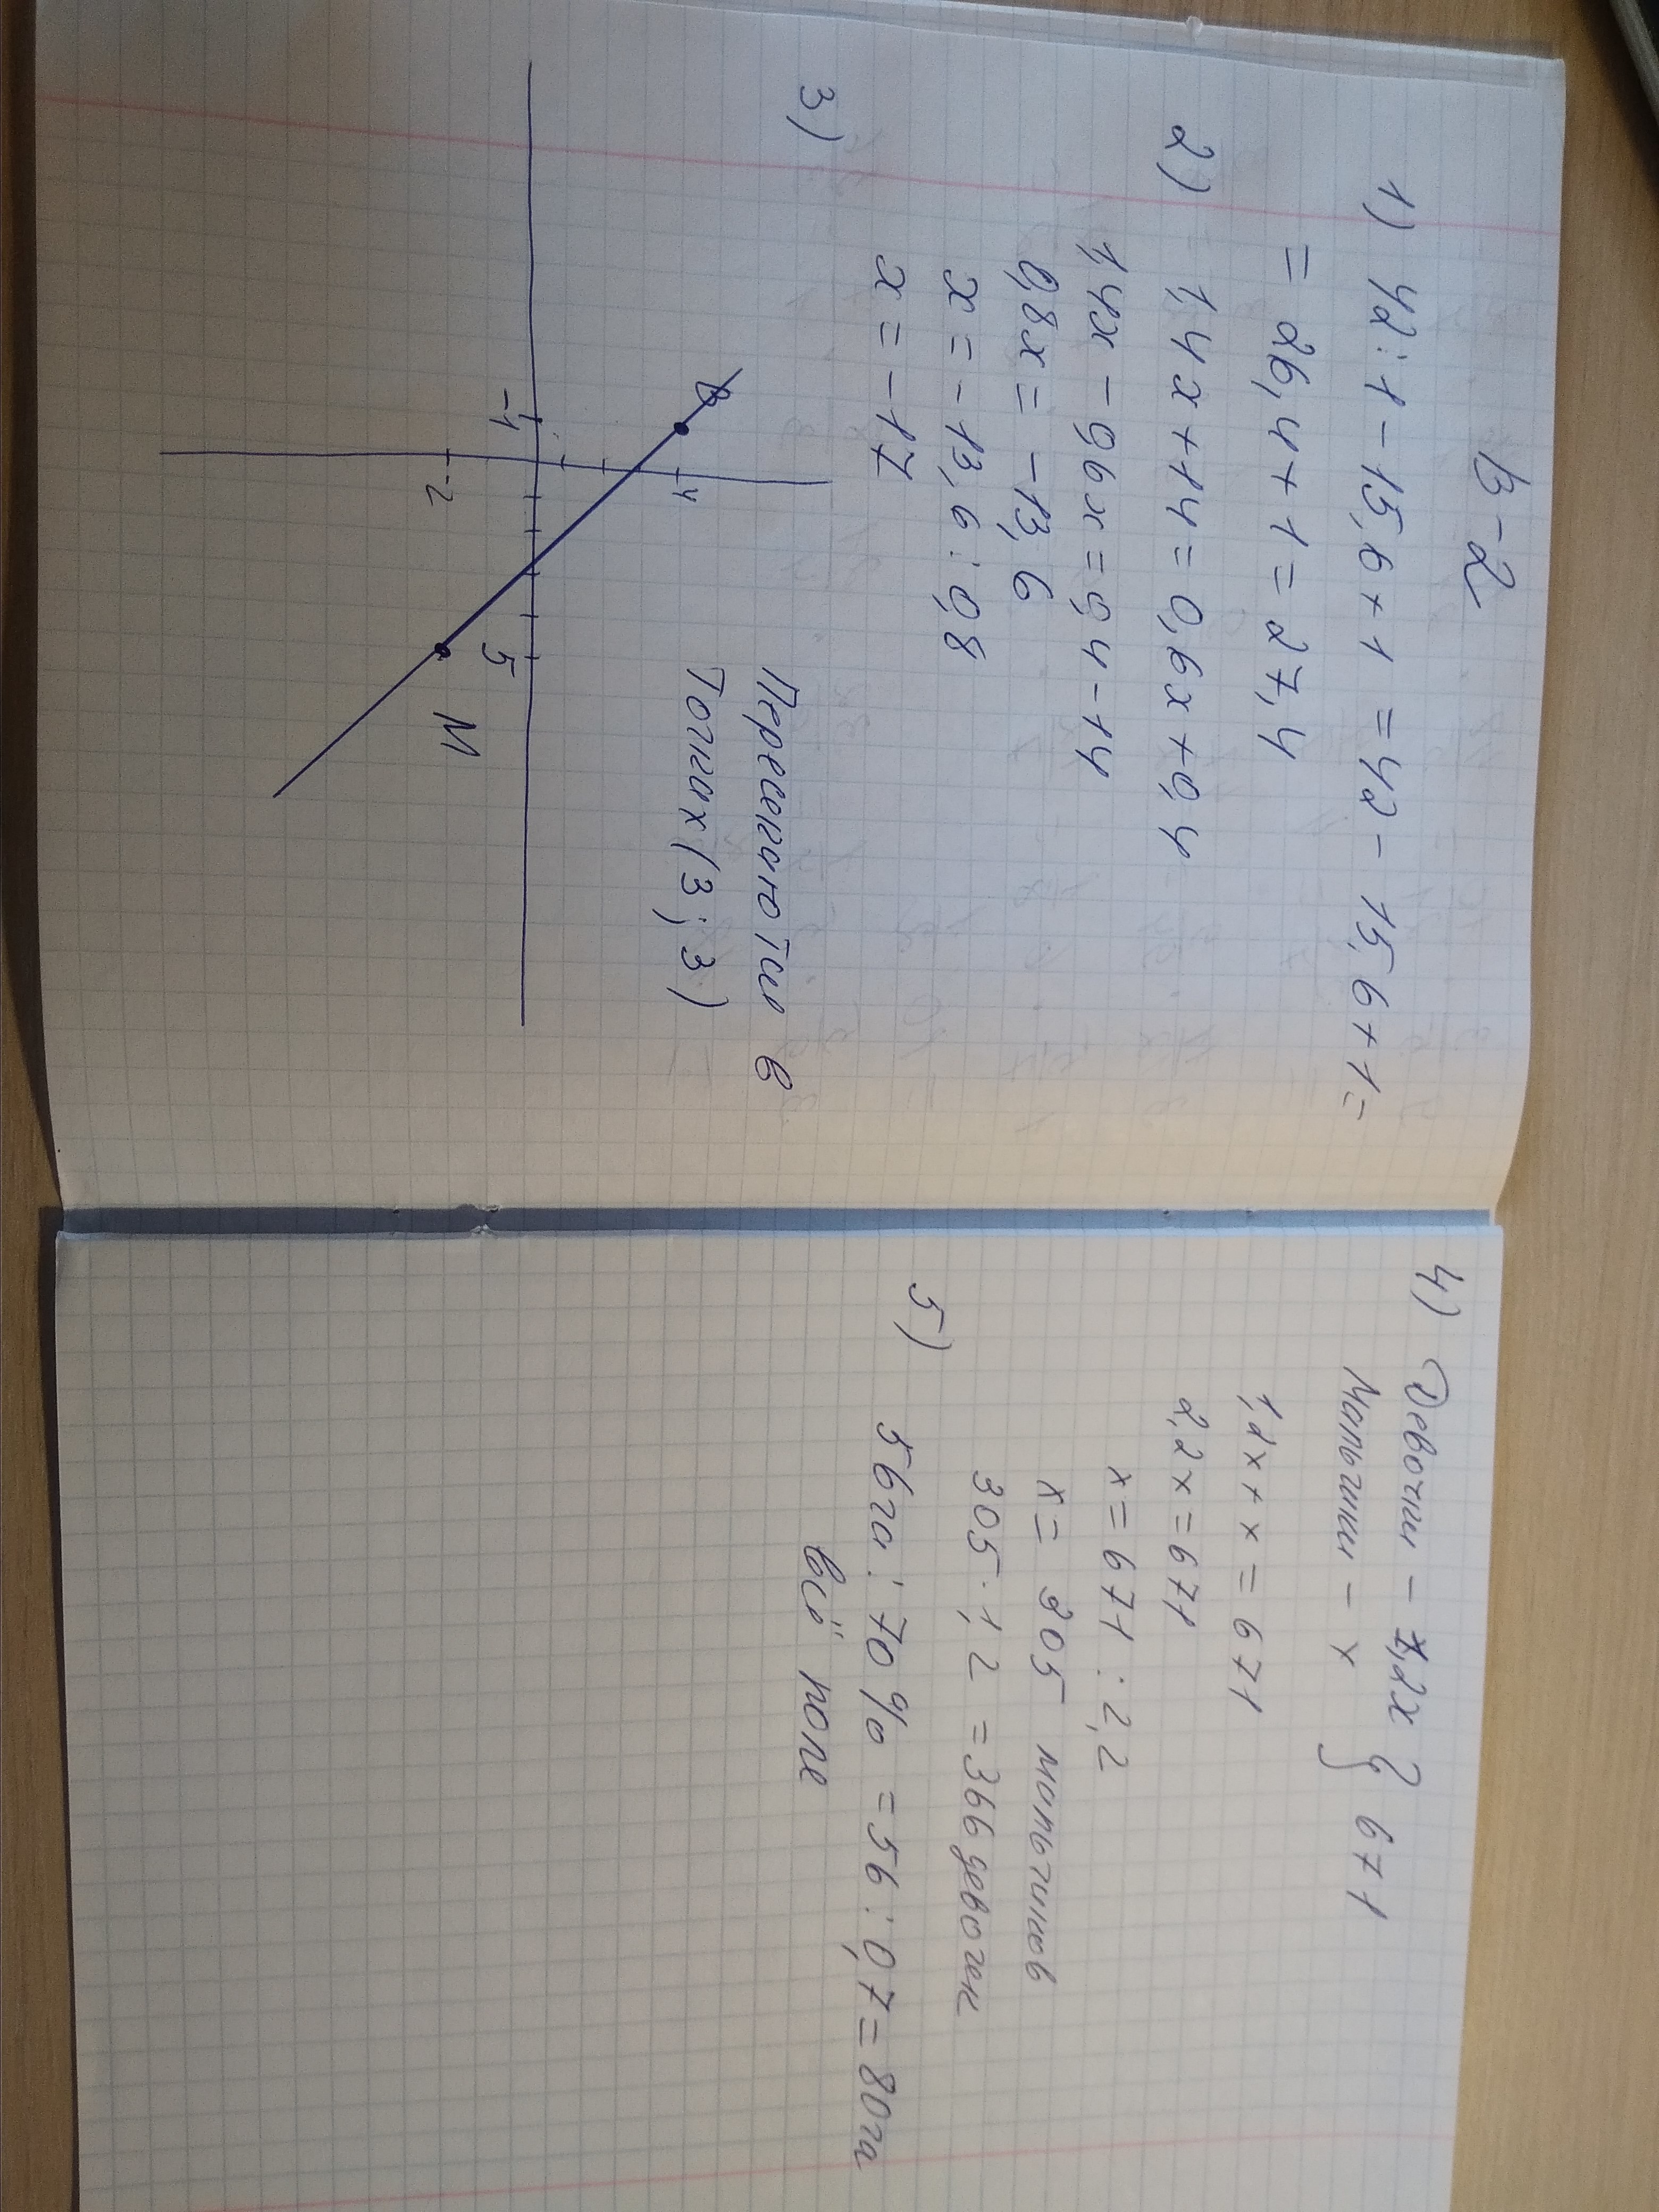 В-2
1) 42 : 1 - 15,6 + 1 = 42 - 15,6 + 1 =
= 26,4 + 1 = 27,4
2) 1,4x + 14 = 0,6x + 0,4
1,4x - 0,6x = 0,4 - 14
0,8x = -13,6
x = -13,6 : 0,8
x = -17
3)
Пересекаются в
точках (3; 3)
В
4
-1
5
-2
М
4) Девочки - 1,2x } 671
Мальчики - x
1,2x + x = 671
2,2x = 671
x = 671 : 2,2
x = 305 мальчиков
305 · 1,2 = 366 девочек
5) 56га : 70% = 56 : 0,7 = 80га
всё поле